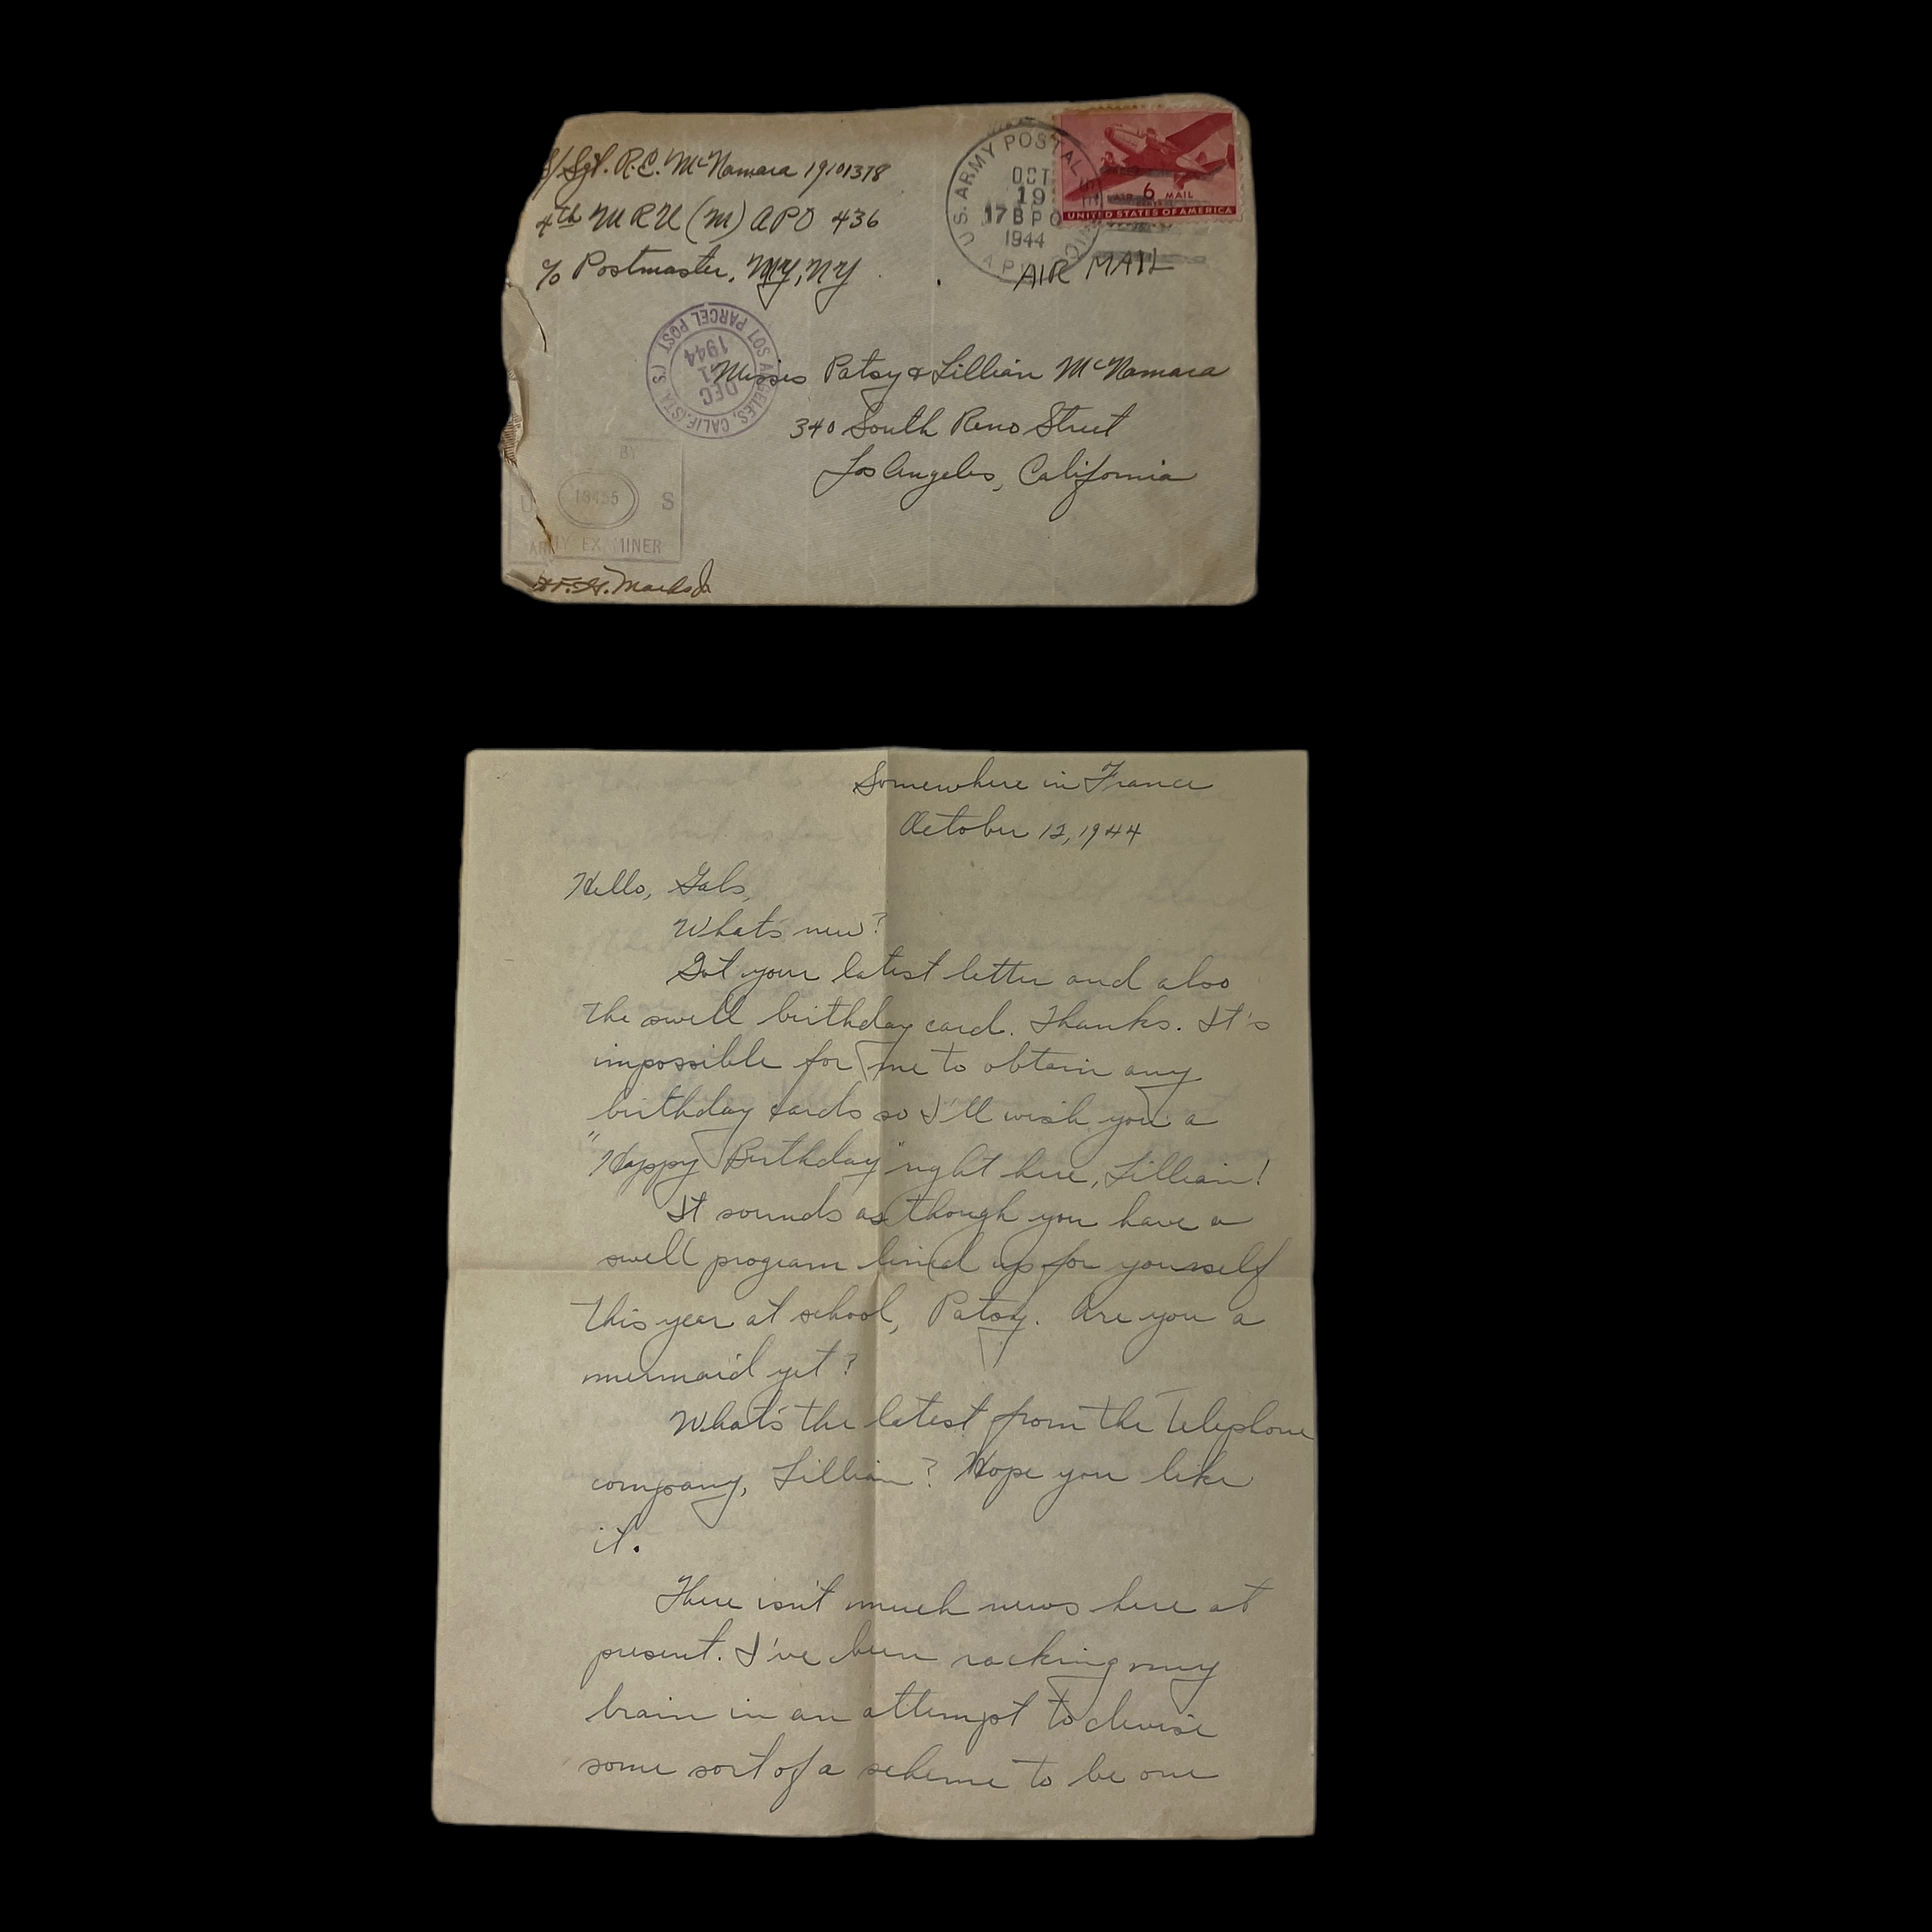 S/Sgt. R.E. McNamara 19101378
4th M R U (M) APO 436
c/o Postmaster, NY, NY
U.S. ARMY POSTAL
OCT
19
17 B P O
1944
6
MAIL
UNITED STATES OF AMERICA
AIR MAIL
LOS ANGELES, CALIF. (STA. S.) PARCEL POST
DEC
1944
Misses Patsy & Lillian McNamara
340 South Reno Street
Los Angeles, California
BY
U S
ARMY EXAMINER
Somewhere in France
October 12, 1944
Hello, Gals,
What's new?
Got your latest letter and also
the swell birthday card. Thanks. It's
impossible for me to obtain any
birthday cards so I'll wish you a
"Happy Birthday" right here, Lillian!
It sounds as though you have a
swell program lined up for yourself
this year at school, Patsy. Are you a
mermaid yet?
What's the latest from the telephone
company, Lillian? Hope you like
it.
There isn't much news here at
present. I've been racking my
brain in an attempt to devise
some sort of a scheme to be one